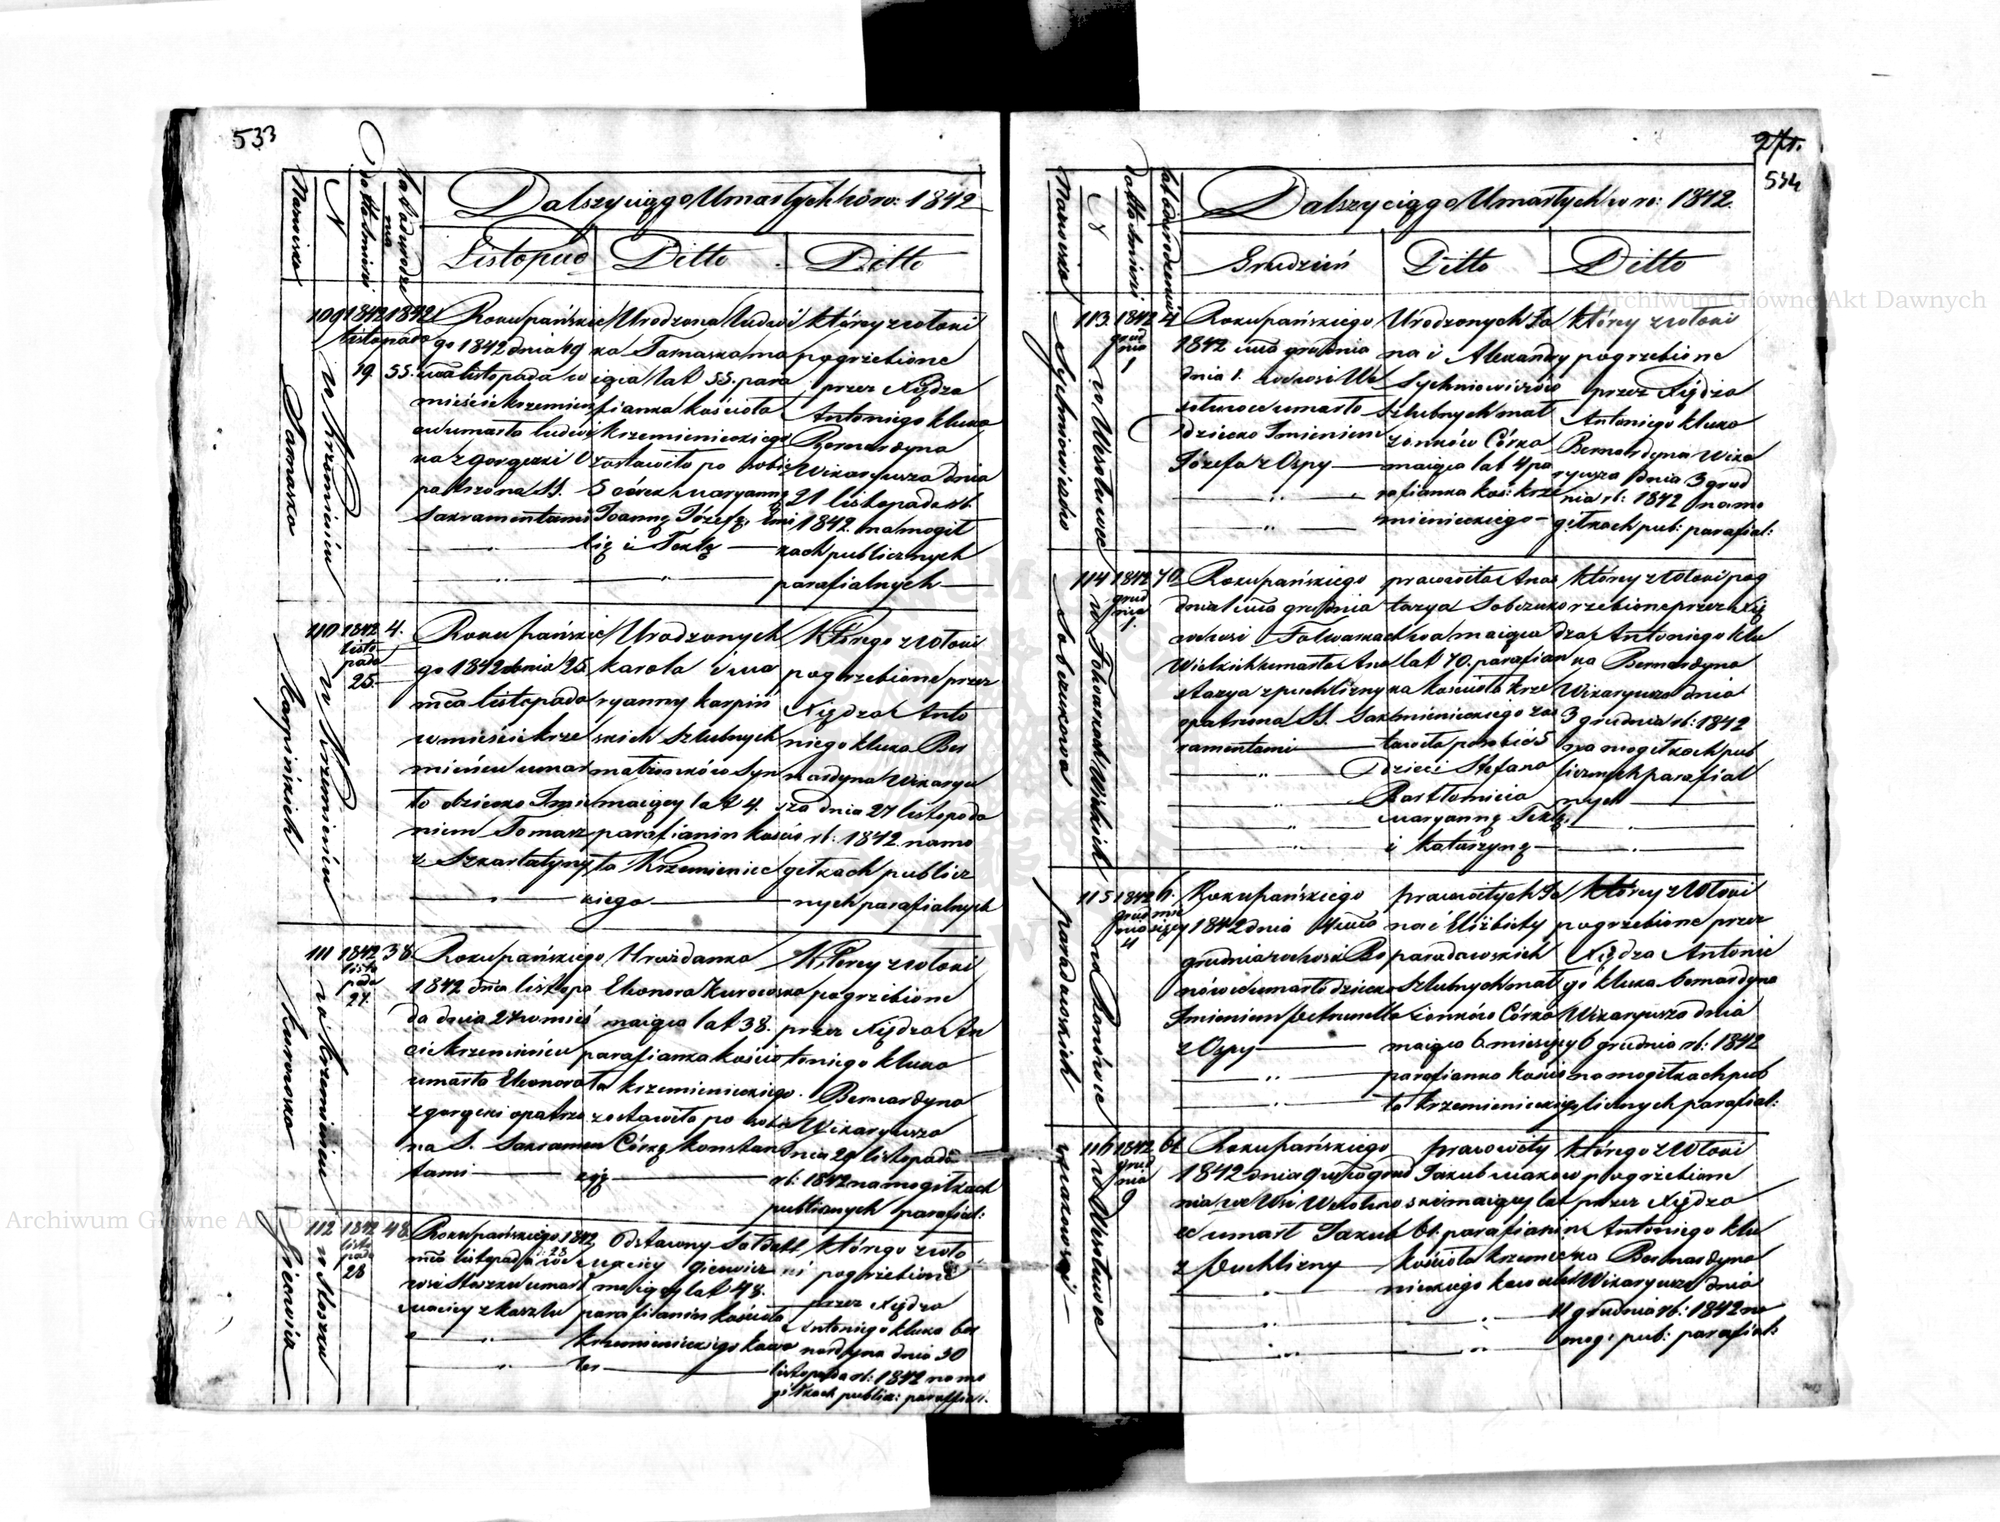 533
Dalszy ciąg o Umarłych w ro: 1842
Nazwisko
N
Datta śmierci
Lata od urodze
nia
Listopad
Ditto
Ditto
109
1842
Listopada
19.
1842
55.
w Krzemieńcu
Tamaszka
Roku pańskie
go 1842 dnia 19
mca listopada w
mieście krzemień
cu umarła Ludwi
ka z gorączki O
patrzona SS.
Sakramentami
Urodzona Ludwi
ka Tamaszka ma
iąca lat 55. para
fianka kościoła
krzemienieckiego
zostawiła po sobie
5 córek Maryannę
Joannę Józefę Emi
lię i Teklę
którey zwłoki
pogrzebione
przez Xiędza
Antoniego kluka
Bernardyna
Wikaryusza dnia
21 listopada rb.
1842. na mogił
kach publicznych
parafialnych
110
1842
listo
pada
25.
4.
w Krzemieńcu
Karpińskich
Roku pańskie
go 1842 dnia 25
mca listopada
w mieście krze
mieńcu umar
ło dziecko Imie
niem Tomasz
z Szkarlatyny
Urodzonych
Karola i Ma
ryanny karpiń
skich Szlubnych
małżonków Syn
maiący lat 4.
parafianin kościo
ła Krzemieniec
kiego
Którego zwłoki
pogrzebione przez
Xiędza Anto
niego kluka Ber
nardyna Wikaryu
sza dnia 27 listopada
rb: 1842 na mo
giłkach publicz
nych parafialnych
111
1842
listo
pada
27.
38.
w krzemieńcu
Kurowska
Roku pańskiego
1842 mca listopa
da dnia 27 w mieś
cie krzemieńcu
umarła Eleonora
z gorączki opatrzo
na S. Sakramen
tami
Hrażdanka
Eleonora Kurowska
maiąca lat 38.
parafianka kościo
ła krzemienieckiego.
zostawiła po sobie
Córkę konstan
cyę
Którey zwłoki
pogrzebione
przez Xiędza An
toniego kluka
Bernardyna
Wikaryusza
dnia 29 listopada
rb: 1842 na mogiłkach
publicznych parafial:
112
1842
listo
pada
28
48.
w Stoszku
Roku pańskiego 1842
mca listopada d. 28 we
wsi Stoszku umarł
Maciey z kaszlu
Odstawny Sołdatt
Maciey
maiący lat 48.
parafianin kościoła
krzemienieckiego kawa
ler
którego zwło
ki pogrzebione
przez Xiędza
Antoniego kluka ber
nardyna dnia 30
listopada rb: 1842 na mo
giłkach public: parafial:
534
Dalszy ciąg o Umarłych w ro: 1842.
Nazwisko
N
Datta śmierci
Lat od urodzenia
Grudzień
Ditto
Ditto
113
1842
grud
nia
1
4
w Wesołuwce
Sychniowiczów
Roku pańskiego
1842 mca grudnia
dnia 1. we wsi We
sołuwce umarło
dziecko Imieniem
Józefa z Ospy
Urodzonych Ja
na i Alexandry
Sychniowiczów
Szlubnych mał
żonków Córka
maiąca lat 4 pa
rafianka koś: krze
mienieckiego
którey zwłoki
pogrzebione
przez Xiędza
Antoniego kluka
Bernardyna Wika
ryusza dnia 3 grud
nia rb: 1842 na mo
giłkach pub: parafial:
114
1842
grud
nia
1.
70
w Folwarkach Wielkich
Sobczukowa
Roku pańskiego
dnia 1 mca grudnia
we wsi Folwarkach
Wielkich umarła Ana
stazya z puchlizny
opatrzona SS. Sak
ramentami
pracowita Anas
tazya Sobczuko
wa maiąca
lat 70. parafian
ka kościoła krze
mienieckiego zos
tawiła po sobie 5
dzieci Stefana
Bartłomieia
Maryannę Teklę
i katarzynę
którey zwłoki pog
rzebione przez Xię
dza Antoniego klu
ka Bernardyna
Wikaryusza dnia
3 grudnia rb: 1842
na mogiłkach pub
licznych parafial
nych
115
1842
grud
nia
4
6.
mie
sięcy
Paradowskich
Roku pańskiego
1842 dnia 4 mca
grudnia we wsi Bo
nówce umarło dziecko
Imieniem Petrunella
z Ospy
pracowitych Ja
na i Elżbiety
paradowskich
Szlubnych mał
żonków Córka
maiąca 6 miesięcy
parafianka kościo
ła krzemienieckiego
którey zwłoki
pogrzebione przez
Xiędza Antonie
go kluka bernardyna
Wikaryusza dnia
6 grudnia rb: 1842
na mogiłkach pub
licznych parafial:
116
1842
grud
nia
9
61
w Wesołuwce
Makowski
Roku pańskiego
1842 dnia 9 mca grud
nia we Wsi Wesołuw
ce umarł Jakub
z Puchlizny
pracowity
Jakub Makow
ski maiący lat
61. parafianin
kościoła krzemie
nieckiego kawaler
którego zwłoki
pogrzebione
przez Xiędza
Antoniego klu
ka Bernardyna
Wikaryusza dnia
11 grudnia rb: 1842 na
mog: pub: parafial:
Archiwum Główne Akt Dawnych
Archiwum Główne Akt Dawnych